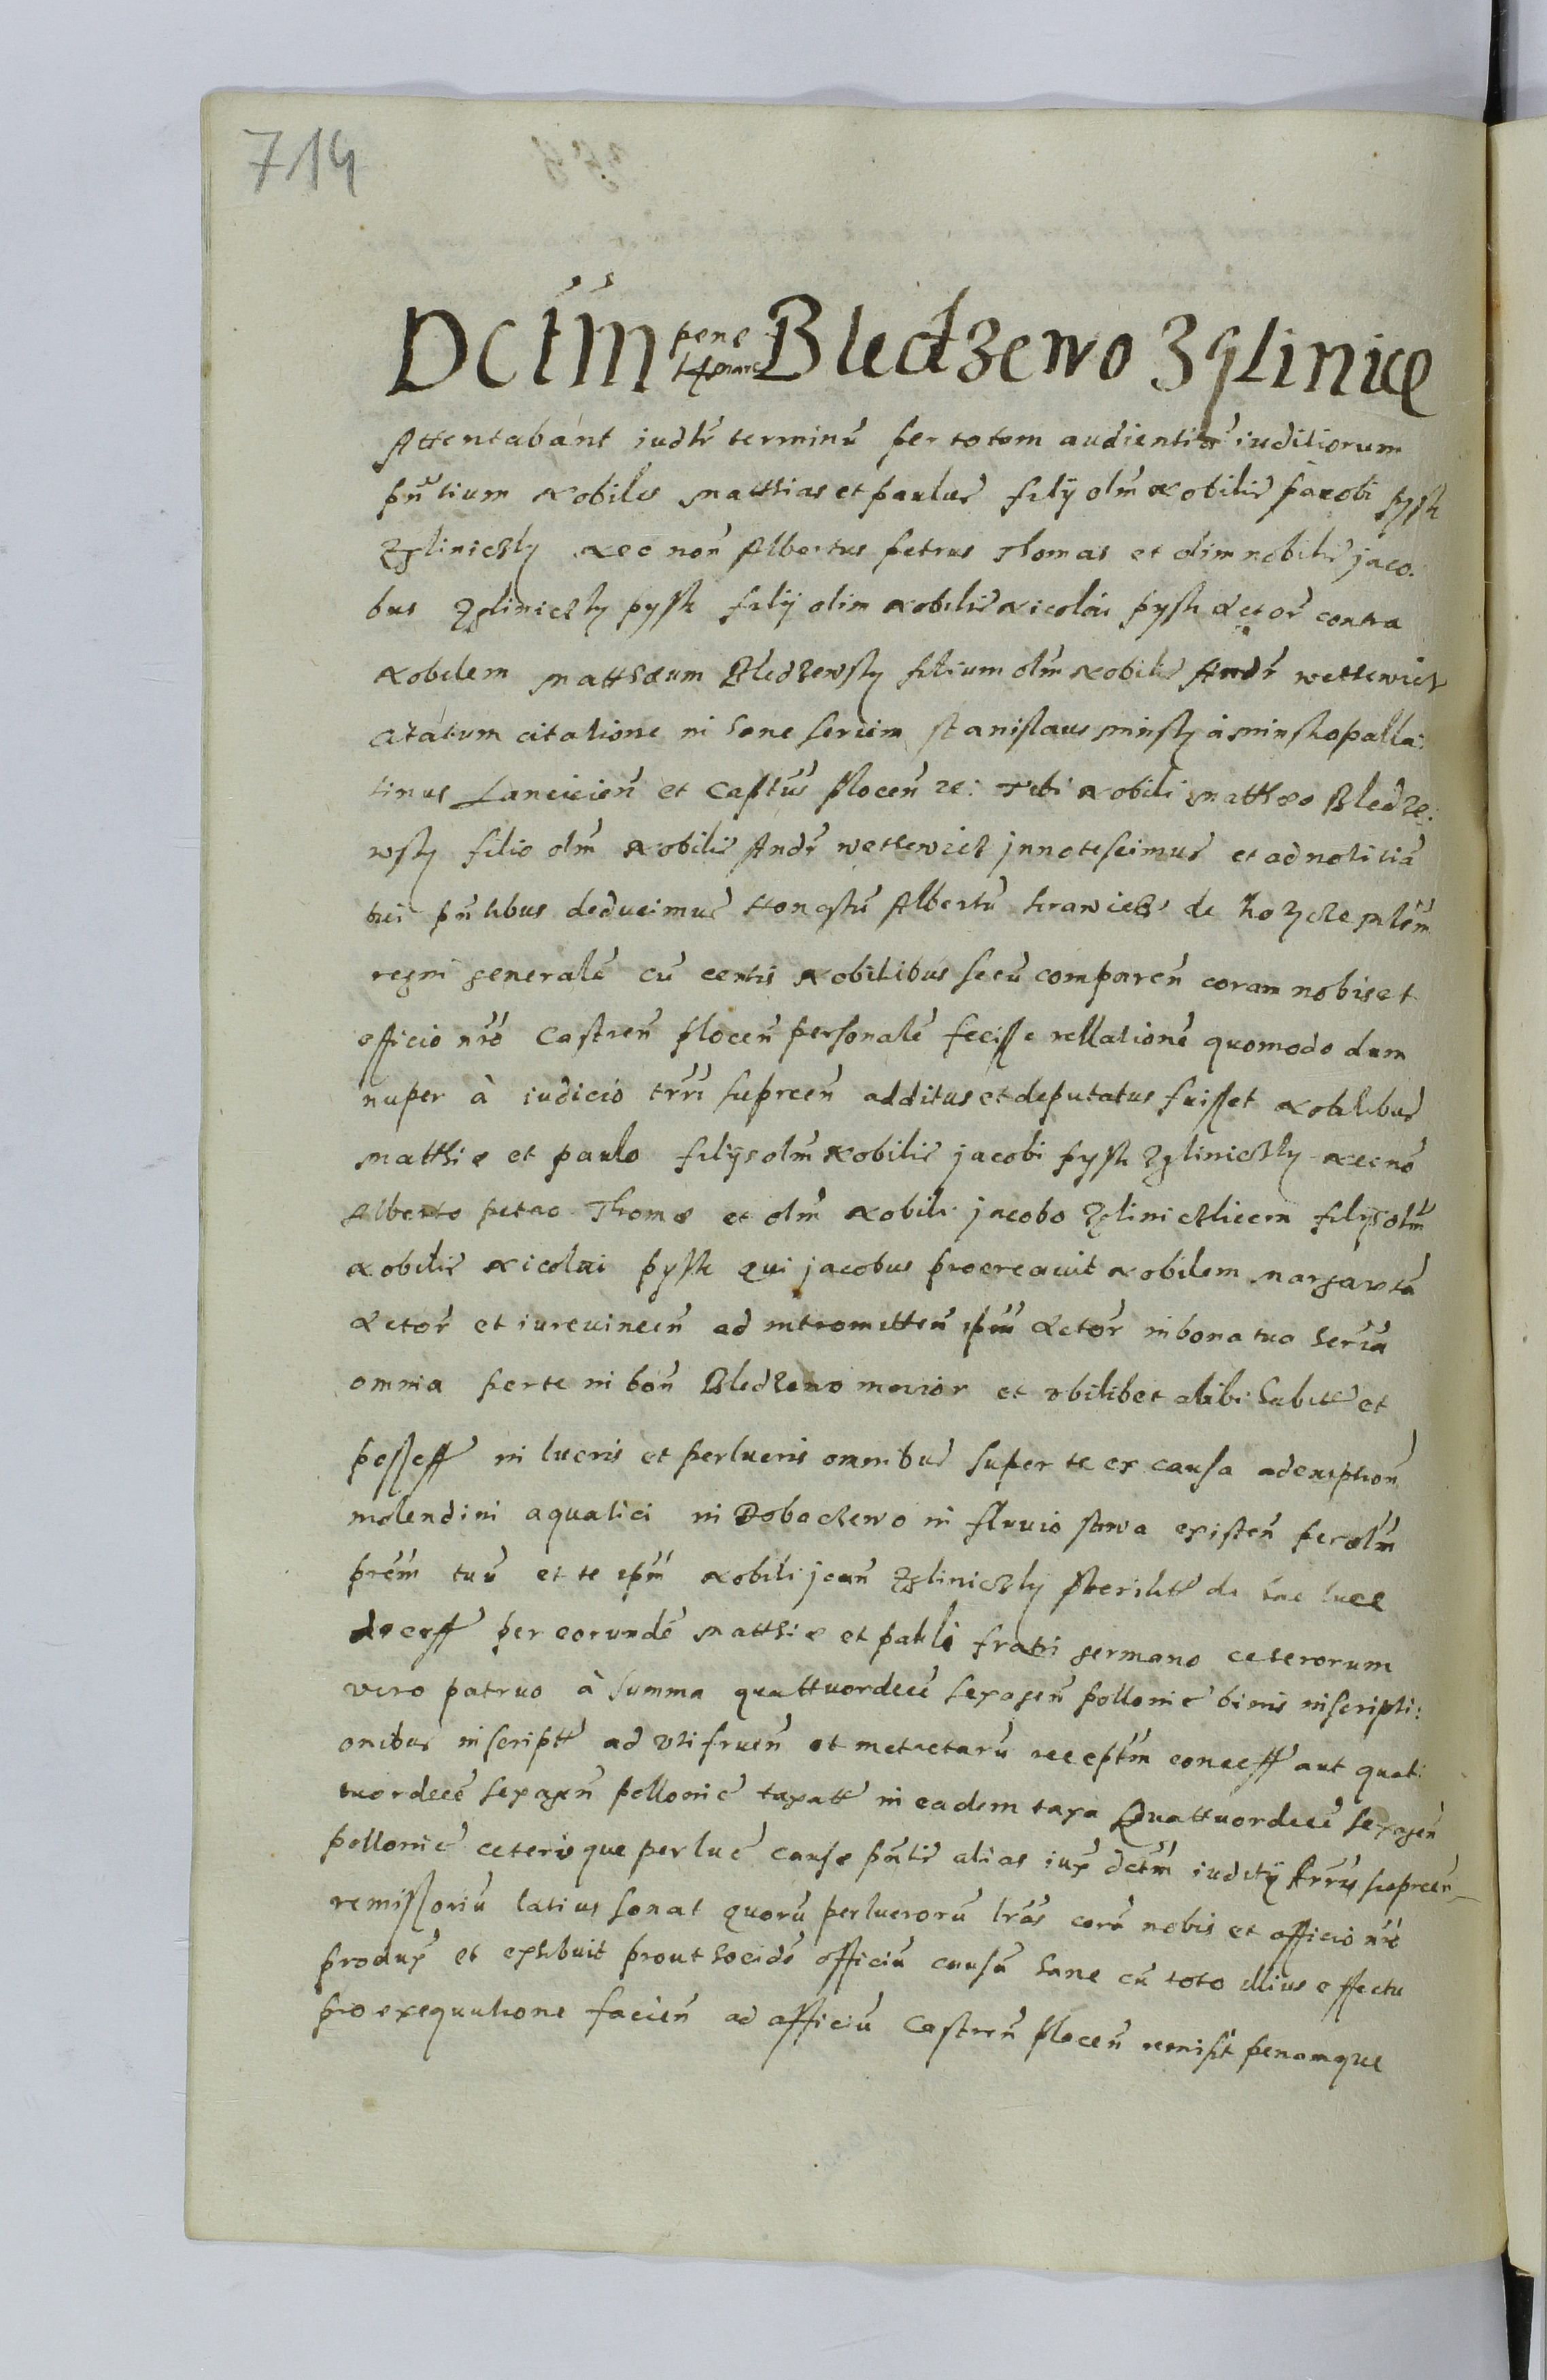 714
Dctm pene 14 marc Bledzewo Zglinice
Attentabant iudlr terminũ per totam audientiã iuditiorum
pñtium Nobiles Matthias et Paulus filÿ olm Nobilis Jacobi Pysk
Zgliniczky Nec non Albertus Petrus Thomas et olim nobilis Jaco:
bus Zgliniczky Pysk filÿ olim Nobilis Nicolai Pysk Actor contra
Nobilem Matthæum Bledzewsky filium olm Nobilis Andr
citatum citatione in hanc seriem Stanislaus Minsky à Minsko Palla:
tinus Lancicieñ et Captus Ploceñ zc: Tibi Nobili Matthæo Bledze:
wsky filio olm Nobilis Andr innotescimus et ad notitiã
tui pñtibus deducimus Honestũ Albertũ de mlem
regni generalẽ cũ certis Nobilibus secũ compareñ coram nobis et
officio nro Castreñ Ploceñ personalẽ fecisse rellationẽ quomodo dum
nuper à iudicio trri supreeñ additus et deputatus fuisset Nobilibus
Matthiæ et Paulo filÿs olm Nobilis Jacobi Pysk Zgliniczky Necnõ
Alberto Petro Thomæ et olm Nobili Jacobo Zgliniczkiem filÿs olm
Nobilis Nicolai Pysk qui Jacobus procreavit Nobilem Margaretã
Actor et iurevinceñ ad intromitteñ ipm Actor in bona tua herria
omnia per te in boñ Bledzewo maior et ubilibet alibi habitt et
possess in lucris et perlucris omnibus super te ex causa ademptioñ
molendini aquatici in Dobaczewo in fluvio Skrwa existeñ per olm
prem tuũ et te ipm Nobili Joañ Zgliniczky sterilitr de hac luce
decess per eorundẽ Matthiæ et Pauli fratri germano ceterorum
vero patruo à summa quattuordecẽ sexageñ pollonic binis inscripti:
onibus inscriptt ad utifrueñ et metretarũ receptm concess aut quat:
tuordecẽ sexageñ pollonic taxatt in eadem taxa Quattuordecẽ sexageñ
pollonic ceterisque perluc causæ pñtis alias iux dctm iuditÿ trris supreeñ
remissoriũ latius sonat quorũ perlucrorũ lras corã nobis et officio nro
produx et exhibuit prout hocidẽ officiũ causã hanc cũ toto illius effectu
pro exequutione facieñ ad officiũ Castreñ Ploceñ remisit penamque